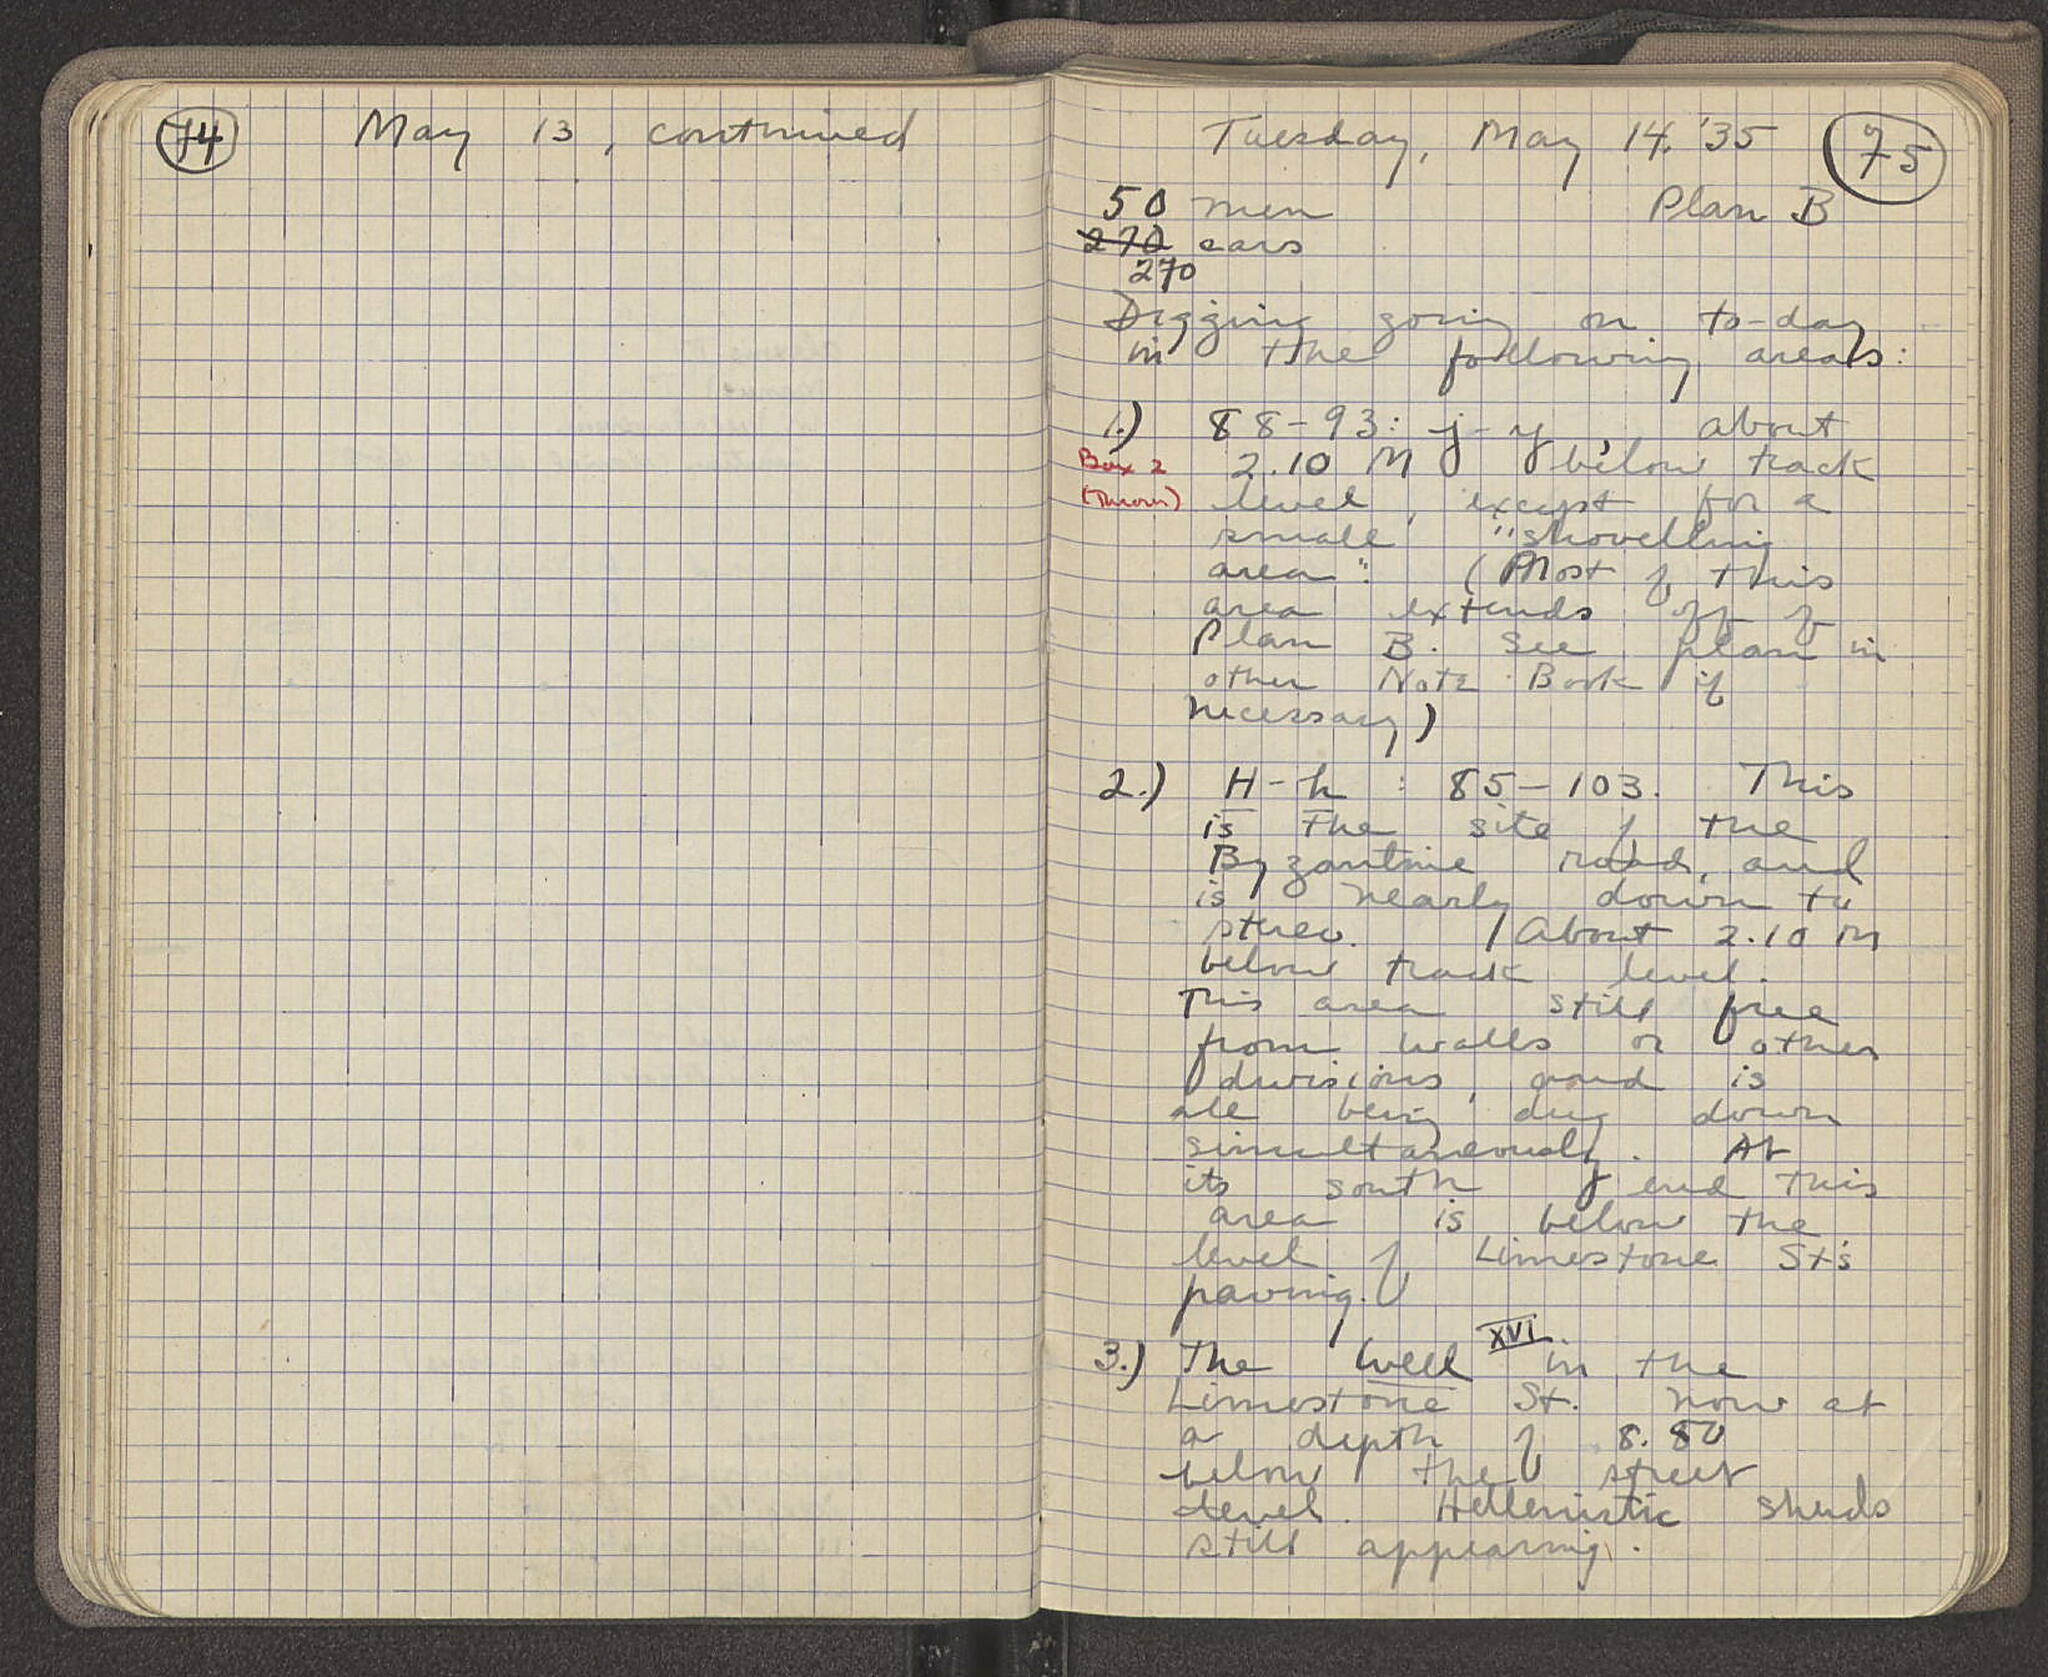 74
May 13, continued
Tuesday, May 14, '35
75
50 men
Plan B
270 cars
270
Digging going on to-day
in the following areas:
1.) 88-93: j-y, about
Box 2
2.10 M below track
(Thrown)
level, except for a
small "shovelling
area". (Most of this
area extends off of
Plan B. See plan in
other Note Book if
necessary)
2.) H-h : 85-103. This
is the site of the
Byzantine road, and
is nearly down to
stereo. (About 2.10 M
below track level.
This area still free
from walls or other
divisions, and is
all being dug down
simultaneously. At
its south end this
area is below the
level of Limestone St's
paving.
XVI
3.) The Well in the
Limestone St. now at
a depth of 8.80
below the street
level. Hellenistic sherds
still appearing.